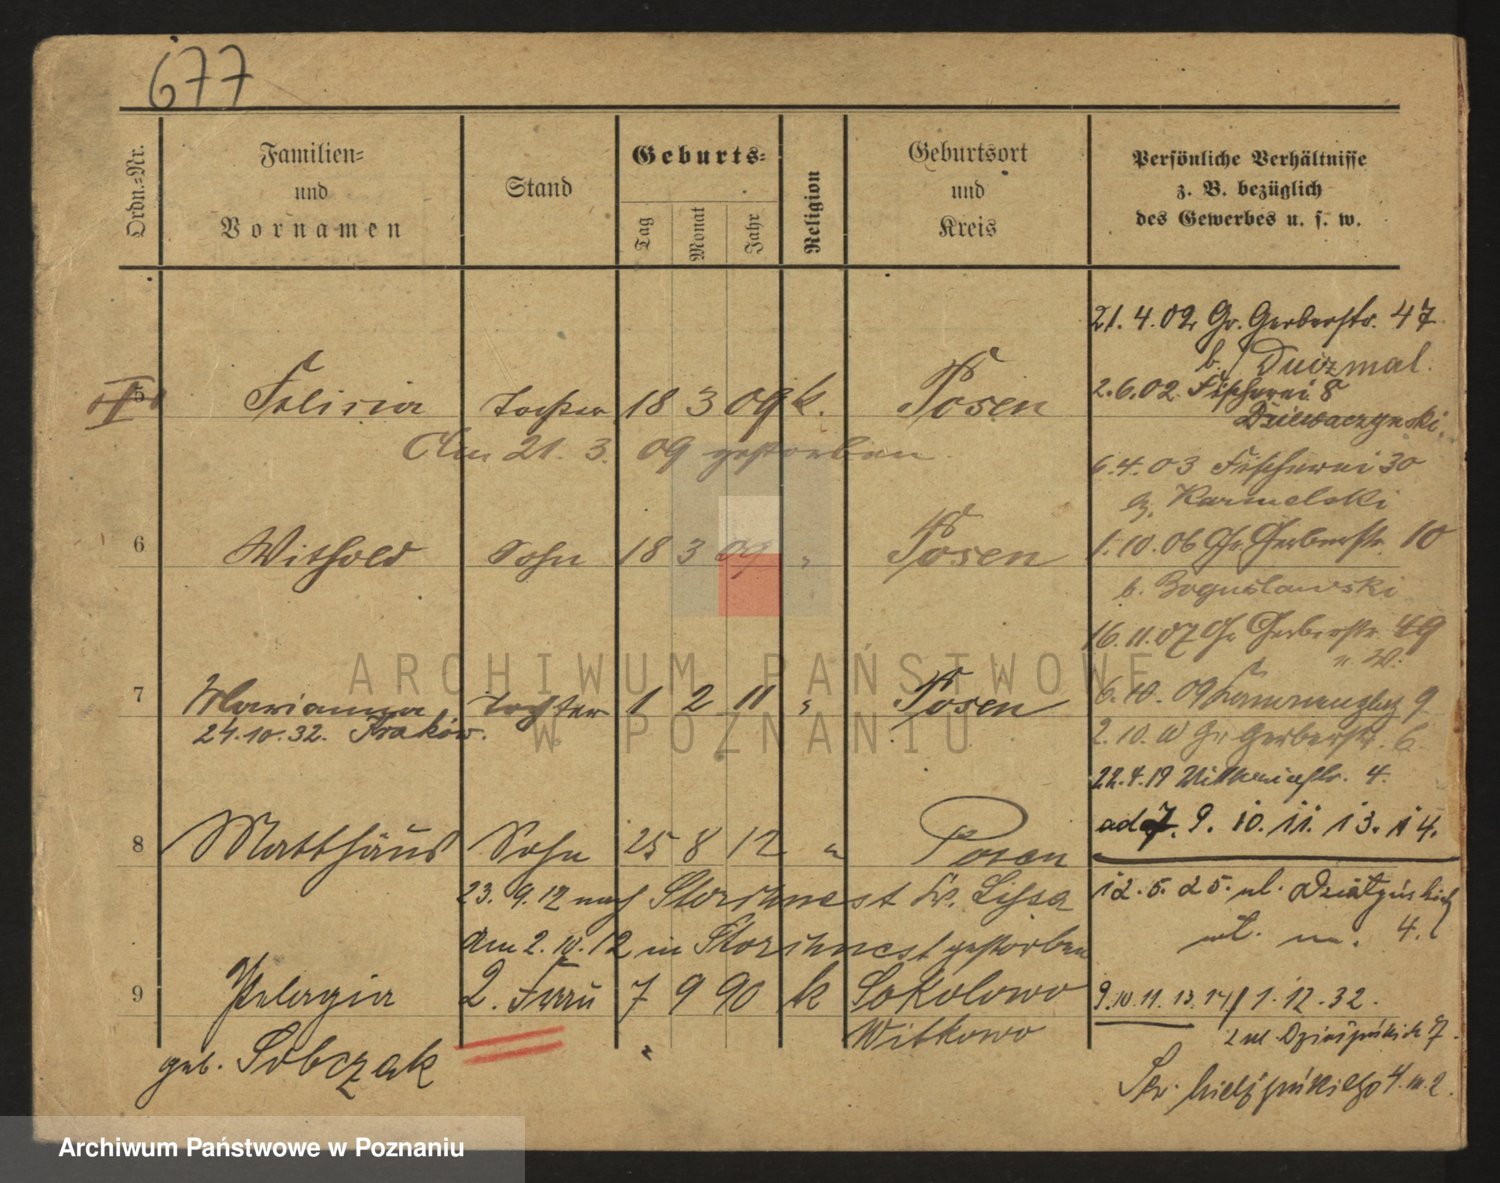 677
Ordn.=Nr.
Familien=
und
Vornamen
Stand
Geburts=
Tag
Monat
Jahr
Religion
Geburtsort
und
Kreis
Persönliche Verhältnisse
z. B. bezüglich
des Gewerbes u. s. w.
5 Felicia Tochter 18 3 09 k. Posen
Am 21. 3. 09 gestorben
6 Withold Sohn 18 3 09 " Posen
7 Marianna Tochter 1 2 11 " Posen
24.10.32. Kraków.
8 Matthäus Sohn 25 8 12 " Posen
23. 9. 12 nach Storchnest Kr. Lissa
am 2. 10. 12 in Storchnest gestorben
9 Pelagia 2. Frau 7 9 90 k Sokolowo
Witkowo
geb. Sobczak
21. 4. 02 Gr. Gerberstr. 47
b. Duczmal.
2. 6. 02. Fischerei 8
Dziewaczynski
6. 4. 03 Fischerei 30
b. Karmelski
1. 10. 06 Gr. Gerberstr. 10
b. Boguslawski
16. 11. 07 Gr. Gerberstr. 49
n. W.
6. 10. 09 9
2. 10. Gr. Gerberstr. 6.
22. 4. 19 4.
ad 7. 9. 10. 11. 13. 14.
12. 5. 25. ul.
m. 4.
9. 10. 11. 13. 14. 1. 12. 32.
4. m. 2
ARCHIWUM PAŃSTWOWE
W POZNANIU
Archiwum Państwowe w Poznaniu